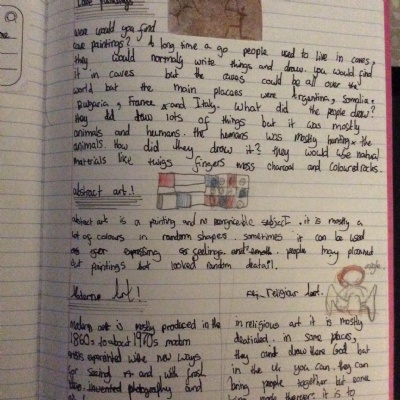 Cave Paintings
were would you find
cave paintings? A long time a go people used to live in caves,
they would normaly write things and draw. you would find
it in caves but the caves could be all over the
world but the main places were Argentina, Somalia,
Bulgaria, France and Italy. What did the people draw?
they did draw lots of things but it was mostly
animals and humans. the humans was mostly hunting the
animals. How did they draw it? they would use natural
matirials like twigs fingers moss charcoal and coloured rocks.
abstract art!
abstract art is a painting and no recognisable subject. it is mostly a
lot of colours in random shapes. sometimes it can be used
as expressing as feelings and smells. people may planned
out paintings but looked random deatail.
Moderne Art!
Modern art is mostly produced in the
1860s to about 1970s modern
artists experimented with new ways
for seeing it and with fresh
invented photography and
religious art.
angle
in religious art it is mostly
deatiled. in some places,
they cant draw there God but
in the uk you can. they can
bring people together but some
it is to